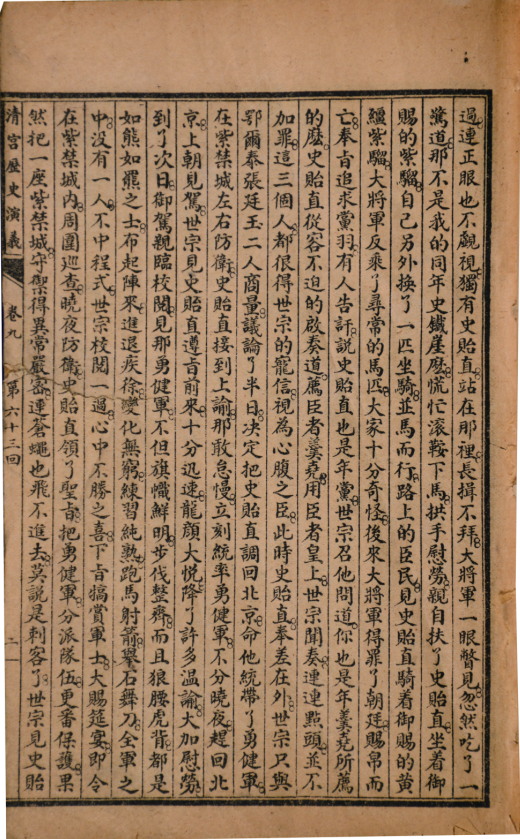 過連正眼也不覷視獨有史貽直站在那裡長揖不拜大將軍一眼瞥見忽然吃了一
驚道那不是我的同年史鐵崖麽慌忙滾鞍下馬拱手慰勞親自扶了史貽直坐着御
賜的紫騮自己另外換了一匹坐騎並馬而行路上的臣民見史貽直騎着御賜的黄
韁紫騮大將軍反乘了尋常的馬匹大家十分奇怪後來大將軍得罪了朝廷賜帛而
亡奉旨追求黨羽有人告訐說史貽直也是年黨世宗召他問道你也是年羹堯所薦
的麽史貽直從容不迫的啟奏道薦臣者羹堯用臣者皇上世宗聞奏連連點頭並不
加罪這三個人都很得世宗的寵信視為心腹之臣此時史貽直奉差在外世宗只與
鄂爾泰張廷玉二人商量議論了半日決定把史貽直調回北京命他統帶了勇健軍
在紫禁城左右防衛史貽直接到上諭那敢怠慢立刻統率勇健軍不分曉夜趕回北
京上朝見駕世宗見史貽直遵旨前來十分迅速龍顏大悅降了許多温諭大加慰勞
到了次日御駕親臨校閱見那勇健軍不但旗幟鮮明步伐整齊而且狼腰虎背都是
如熊如羆之士布起陣來進退疾徐變化無窮練習純熟跑馬射箭舉石舞刀全軍之
中没有一人不中程式世宗校閱一過心中不勝之喜下旨犒賞軍士大賜筵宴即令
在紫禁城内周圍巡查曉夜防衛史貽直領了聖旨把勇健軍分派隊伍更番保護果
然把一座紫禁城守禦得異常嚴密連蒼蠅也飛不進去莫說是刺客了世宗見史貽
清宫歷史演義 卷九 第六十三回 二